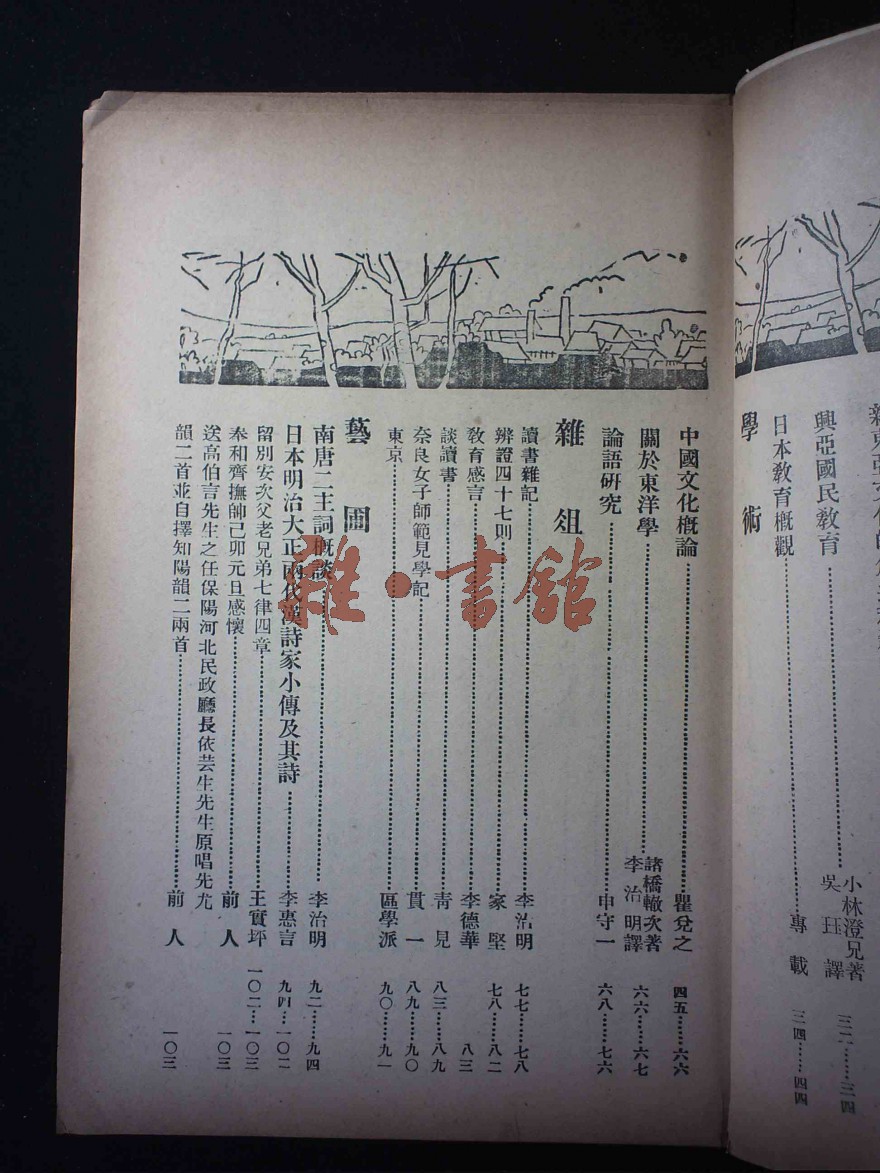 興亞國民教育……小林澄兄著 吳珏譯 三二……三四
學術
日本教育概觀……專載 三四……四四
中國文化概論……瞿兌之 四五……六六
關於東洋學……諸橋轍次著 李治明譯 六六……六七
論語研究……申守一 六八……七六
雜俎
讀書雜記……李治明 七七……七八
辨證四十七則……家堅 七八……八二
教育感言……李德華 八三
談讀書……青見 八三……八九
奈良女子師範見學記……貫一 八九……九〇
東京……區學派 九〇……九一
藝圃
南唐二主詞概談……李治明 九二……九四
日本明治大正兩代漢詩家小傳及其詩……李惠言 九四…一〇二
留別安次父老兄弟七律四章……王實坪 一〇二…一〇三
奉和齊撫帥己卯元旦感懷……前人 一〇三
送高伯言先生之任保陽河北民政廳長依芸生先生原唱先尤
韻二首並自擇知陽韻二兩首……前人 一〇三
雜·書館